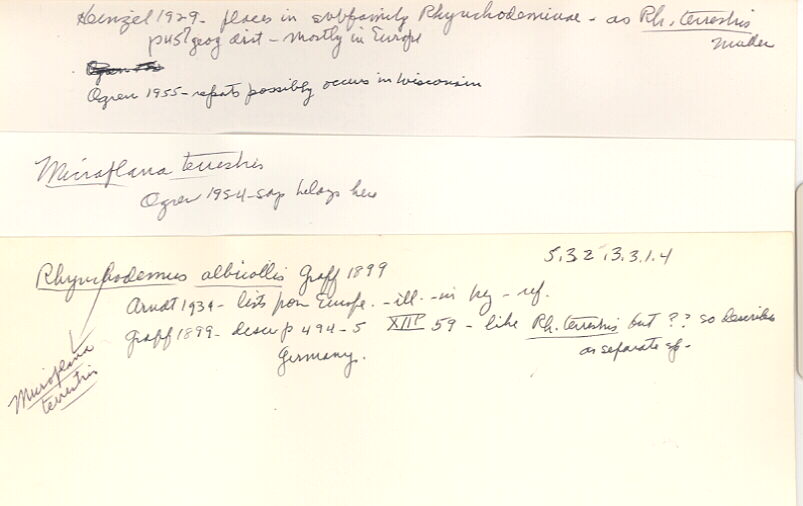 Heinzel 1929 - places in subfamily Rhynchodeminae - as Rh. terrestris
p 45? geog dist - mostly in Europe Müller
Ogren 1955 - repats possibly occurs in Wisconsin
Microplana terrestris
Ogren 1954 - says belongs here
5.32.3.3.1.4
Rhynchodemus albicollis Graff 1899
Arndt 1934 - lists from Europe. - ill. - in key - ref.
Graff 1899 - descr p 494-5 59 - like Rh. terrestris but ?? so describes
Germany. as separate sp -
Microplana
terrestris